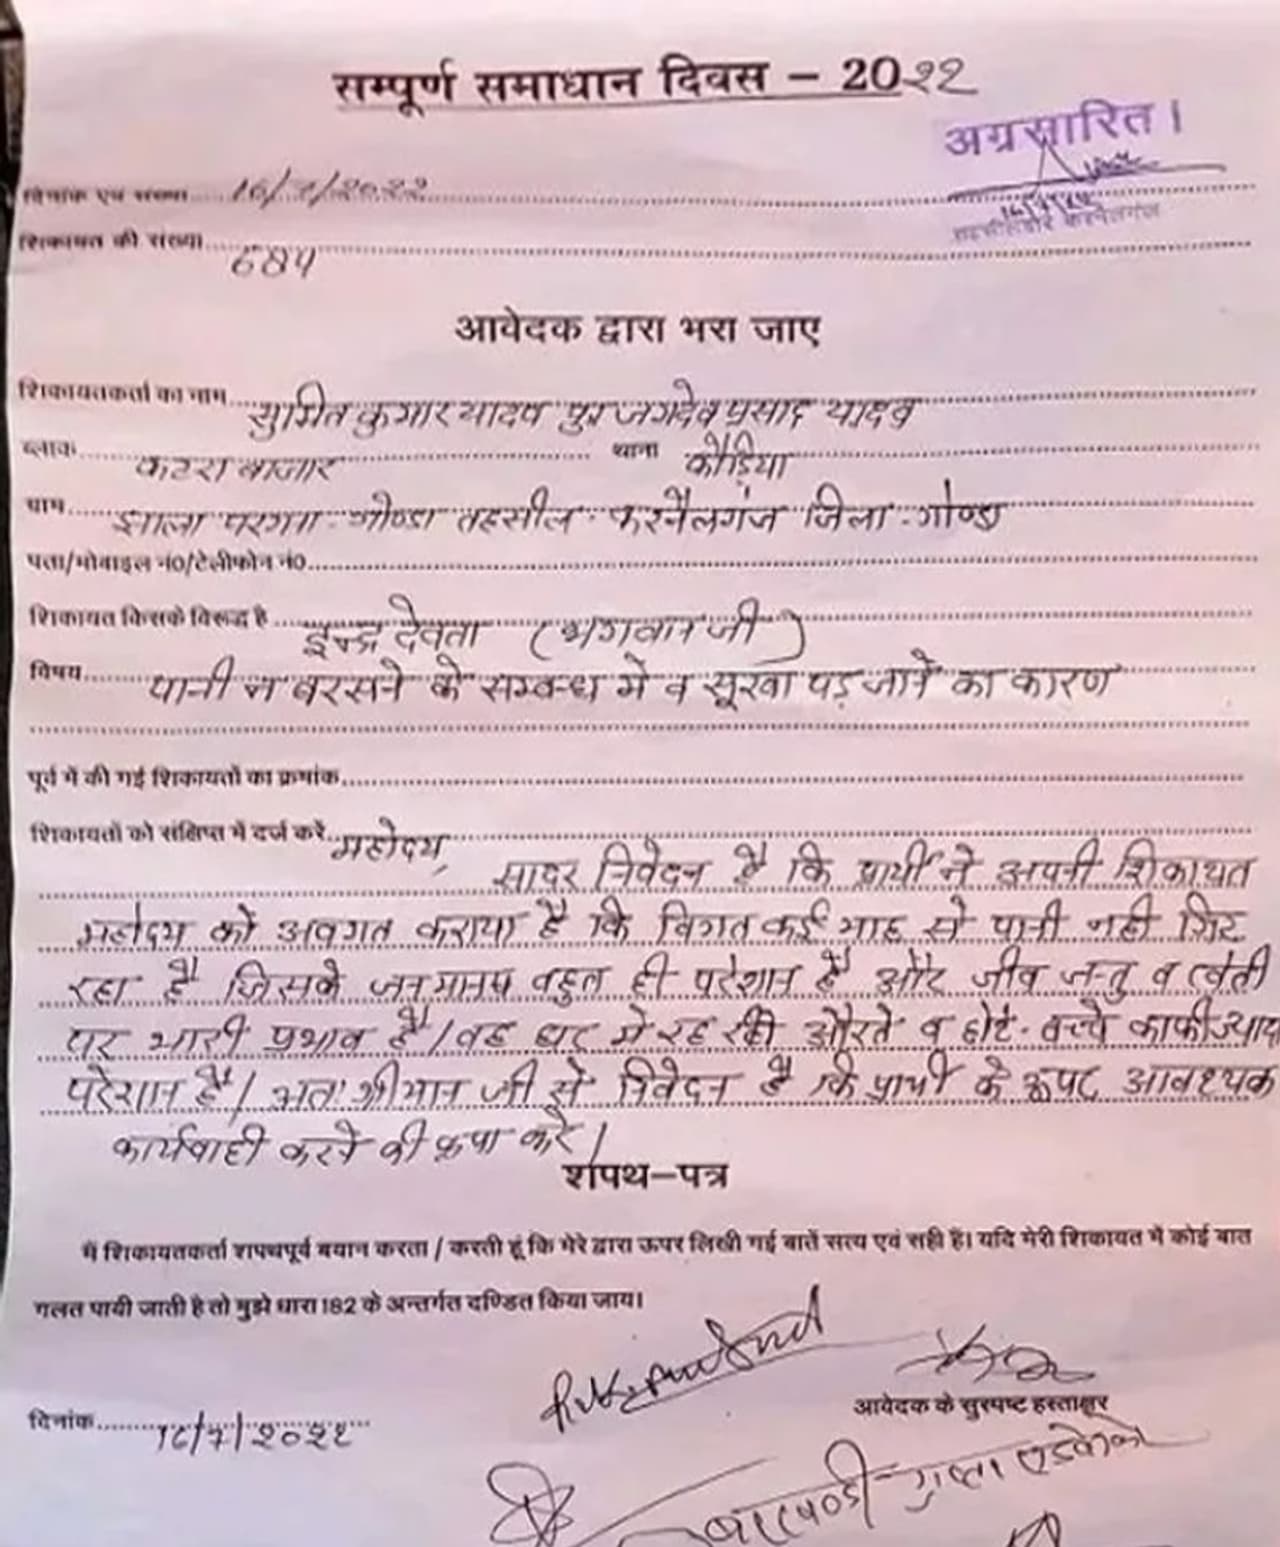 सम्पूर्ण समाधान दिवस – 20२२
अग्रसारित ।
दिनांक एवं संख्या 16/7/2022
तहसीलदार करनैलगंज
शिकायत की संख्या 684
आवेदक द्वारा भरा जाए
शिकायतकर्ता का नाम सुमित कुमार यादव पुत्र जगदेव प्रसाद यादव
ब्लाक कटरा बाजार थाना कौड़िया
ग्राम झाला परगना गोण्डा तहसील करनैलगंज जिला - गोण्डा
पता/मोबाइल नं0/टेलीफोन नं0
शिकायत किसके विरूद्ध है इन्द्र देवता (भगवान जी)
विषय पानी न बरसने के सम्बन्ध मे व सूखा पड़ जाने का कारण
पूर्व में की गई शिकायतों का क्रमांक
शिकायतों को संक्षिप्त में दर्ज करें महोदय,
सादर निवेदन है कि प्रार्थी ने अपनी शिकायत
महोदय को अवगत कराया है कि विगत कई माह से पानी नही गिर
रहा है जिसके जनमानष बहुत ही परेशान है और जीव जन्तु व खेती
पर भारी प्रभाव है। वह घर मे रह रही औरते व छोटे बच्चे काफी ज्यादा
परेशान है। अतः श्रीमान जी से निवेदन है कि प्रार्थी के ऊपर आवश्यक
कार्यवाही करने की कृपा करे।
शपथ–पत्र
मैं शिकायतकर्ता शपथपूर्व बयान करता / करती हूं कि मेरे द्वारा ऊपर लिखी गई बातें सत्य एवं सही है। यदि मेरी शिकायत में कोई बात
गलत पायी जाती है तो मुझे धारा 182 के अन्तर्गत दण्डित किया जाय।
आवेदक के सुस्पष्ट हस्ताक्षर
दिनांक १८/७/२०२२